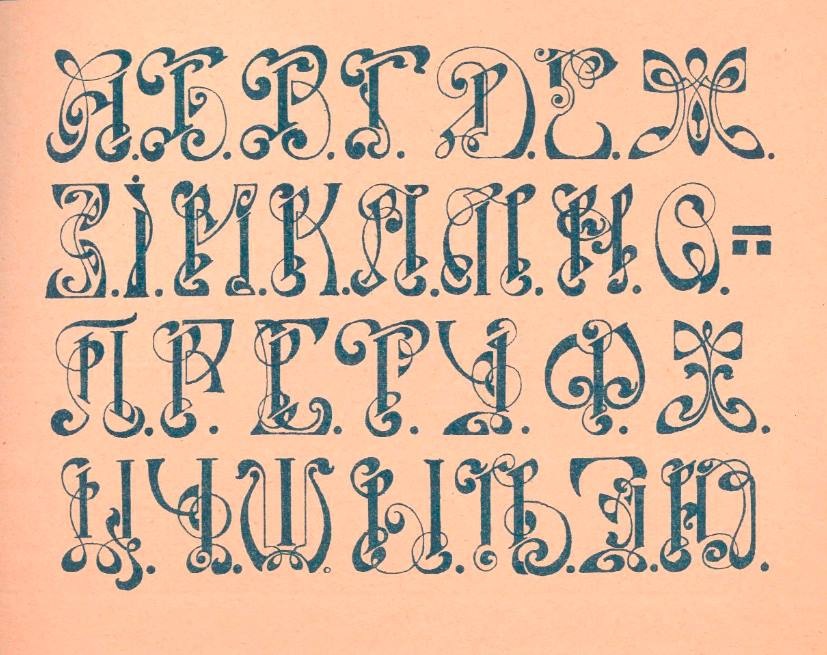 А.Б.В.Г.Д.Е.Ж.
З.І.И.К.Л.М.Н.О.=
П.Р.С.Т.У.Ф.Х.
Ц.Ч.Ш.Ы.Ъ.Э.Ю.